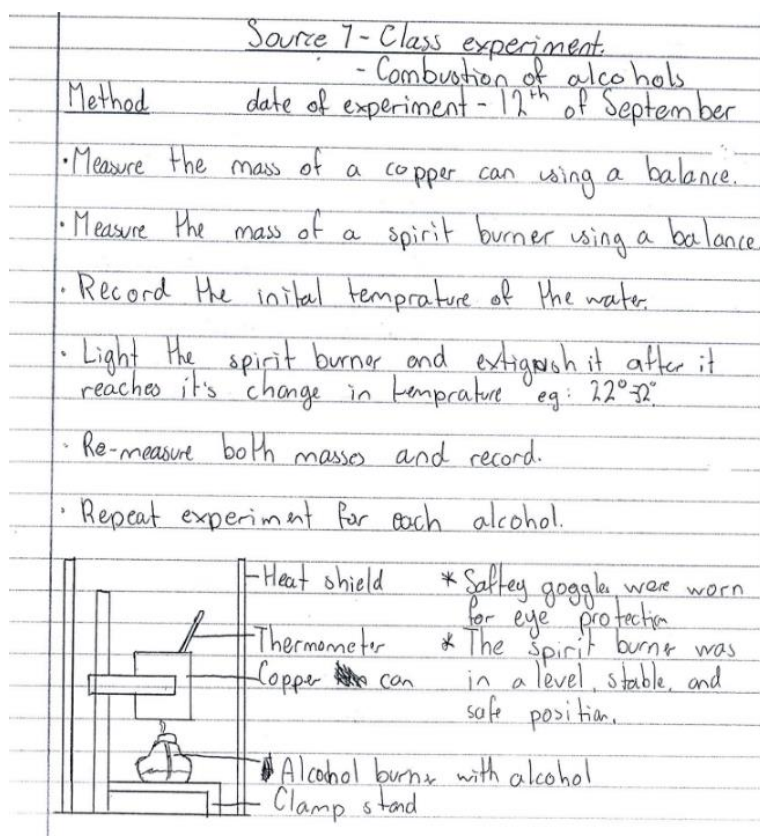 Source 7 - Class experiment.
- Combustion of alcohols
Method date of experiment - 12th of September
• Measure the mass of a copper can using a balance.
• Measure the mass of a spirit burner using a balance
• Record the inital temprature of the water.
• Light the spirit burner and extigush it after it
reaches it's change in temprature eg: 22°-32°.
• Re-measure both masses and record.
• Repeat experiment for each alcohol.
Heat shield
Thermometer
Copper can
Alcohol burner with alcohol
Clamp stand
* Saftey goggles were worn
for eye protection
* The spirit burner was
in a level, stable, and
safe position.